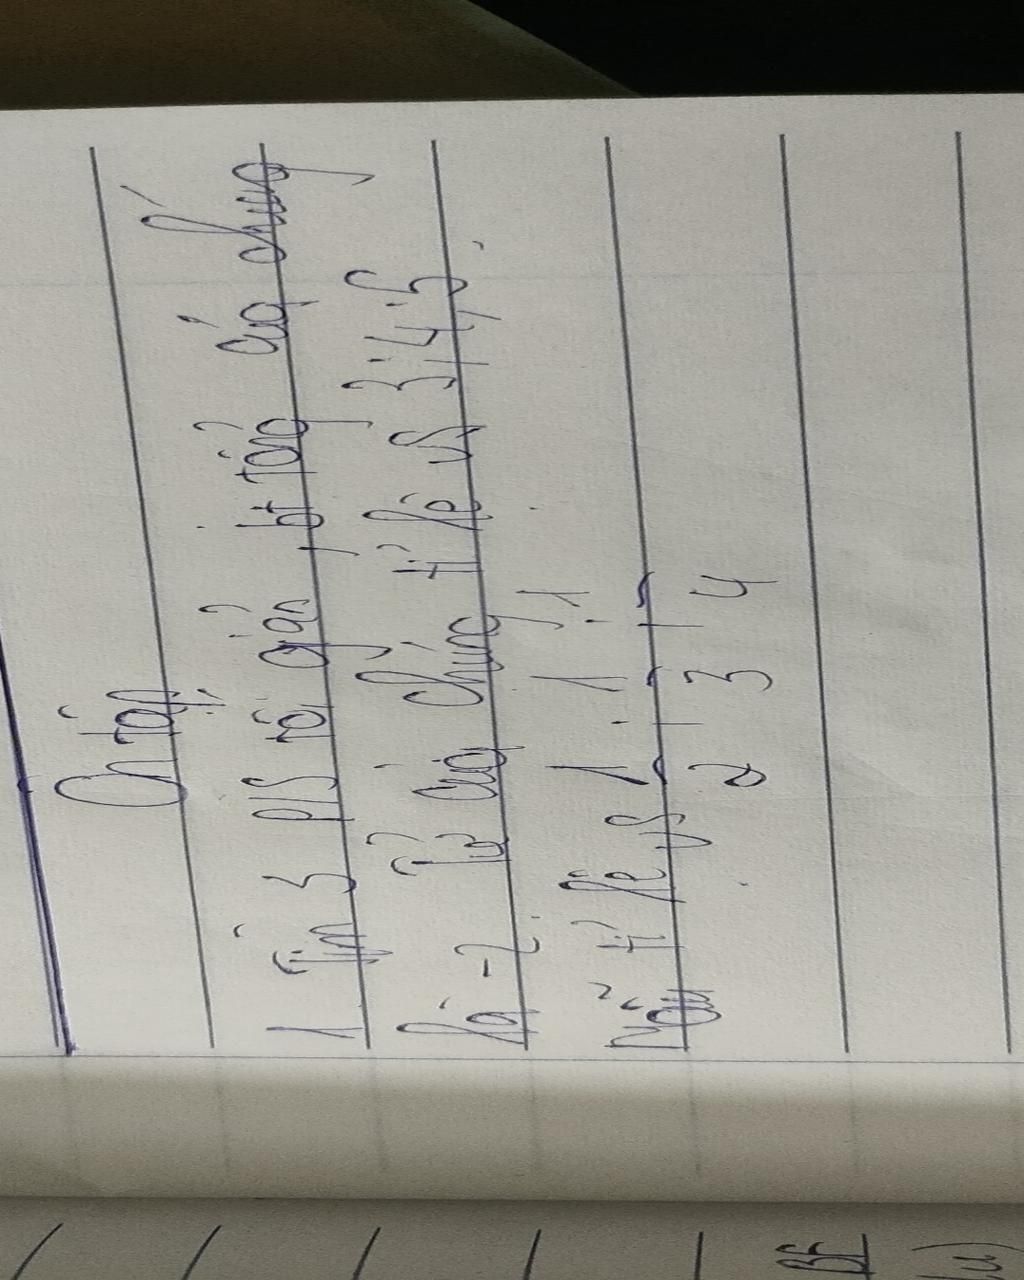 Ôn tập
1. Tìm 3 p/s tối giản, bt tổng của chúng
là -2. Tử của chúng tỉ lệ vs 3; 4; 5.
Mẫu tỉ lệ vs 1/2 : 1/3 : 1/4